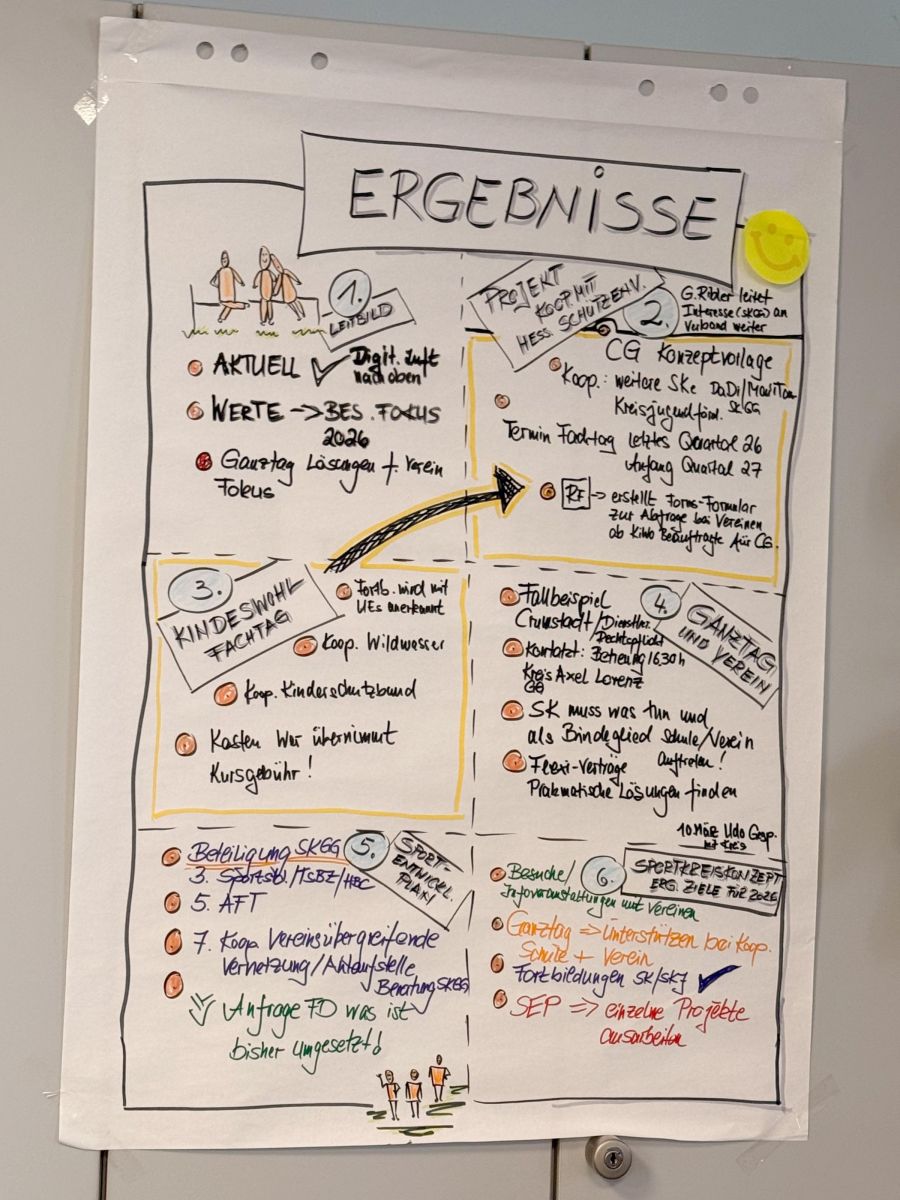 ERGEBNISSE
1.
LEITBILD
AKTUELL Digit. Luft
nach oben
WERTE -> BES. FOKUS
2026
Ganztag Lösungen f. Verein
Fokus
PROJEKT
KOOP MIT
HESS. SCHÜTZENV.
2.
G. Ritder leitet
Interesse (SKGG) an
Verband weiter
CG Konzeptvorlage
Koop.: weitere SKe DaDi/
Kreisjugendförd. SKGG
Termin Fachtag letztes Quartal 26
Anfang Quartal 27
RF -> erstellt Forms-Formular
zur Abfrage bei Vereinen
ob KiWo Beauftragte für CG.
3.
KINDESWOHL
FACHTAG
Fortb. wird mit
UEs anerkannt
Koop. Wildwasser
Koop. Kinderschutzbund
Kosten Wer übernimmt
Kursgebühr!
4.
GANZTAG
UND VEREIN
Fallbeispiel
Crumstadt/Dienstler.
Rechtspflicht
Kontakt: Betreung 16.30h
Kreis Axel Lorenz
GG
SK muss was tun und
als Bindeglied Schule/Verein
auftreten!
Flexi-Verträge
Prakmatische Lösungen finden
5.
SPORT-
ENTWICKL.
PLAN
Beteiligung SKGG
3. Sportstbl./TSBZ/HBC
5. AFT
7. Koop. Vereinsübergreifende
Vernetzung/Anlaufstelle
Beratung SKGG
Anfrage FD was ist
bisher umgesetzt!
10 März Udo Gesp.
mit Kreis
6.
SPORTKREISKONZEPT
ERG. ZIELE FÜR 2026
Besuche/
Infoveranstaltungen mit Vereinen
Ganztag => Unterstützen bei Koop.
Schule + Verein
Fortbildungen SK/SKJ
SEP => einzelne Projekte
ausarbeiten